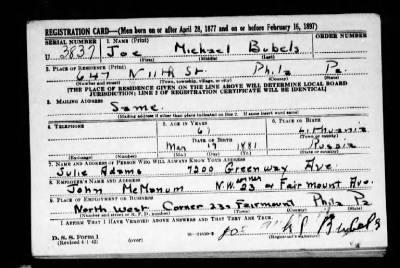 REGISTRATION CARD—(Men born on or after April 28, 1877 and on or before February 16, 1897)
SERIAL NUMBER 1. NAME (Print) ORDER NUMBER
U 3837 Joe Michael Bubels
(First) (Middle) (Last)
2. PLACE OF RESIDENCE (Print)
647 N 11th St. Phila Pa.
(Number and street) (Town, township, village, or city) (County) (State)
[THE PLACE OF RESIDENCE GIVEN ON THE LINE ABOVE WILL DETERMINE LOCAL BOARD
JURISDICTION; LINE 2 OF REGISTRATION CERTIFICATE WILL BE IDENTICAL]
3. MAILING ADDRESS
Same.
[Mailing address if other than place indicated on line 2. If same insert word same]
4. TELEPHONE 5. AGE IN YEARS 6. PLACE OF BIRTH
61 Lithuania
DATE OF BIRTH
Mar 19 1881 Russia
(Exchange) (Number) (Mo.) (Day) (Yr.) (State or country)
7. NAME AND ADDRESS OF PERSON WHO WILL ALWAYS KNOW YOUR ADDRESS
Julie Adams 7200 Greenway Ave.
8. EMPLOYER'S NAME AND ADDRESS
John McManum N.W. corner 23 or Fairmount Ave.
9. PLACE OF EMPLOYMENT OR BUSINESS
North West Corner 23 or Fairmount Phila Pa
(Number and street or R. F. D. number) (Town) (County) (State)
I AFFIRM THAT I HAVE VERIFIED ABOVE ANSWERS AND THAT THEY ARE TRUE.
D. S. S. Form 1
(Revised 4-1-42) (over) Bubels
(Registrant's signature)